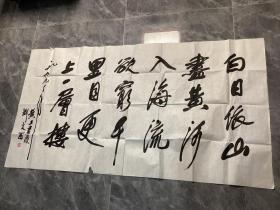 白日依山
盡黄河
入海流
欲窮千
里目更
上一層樓